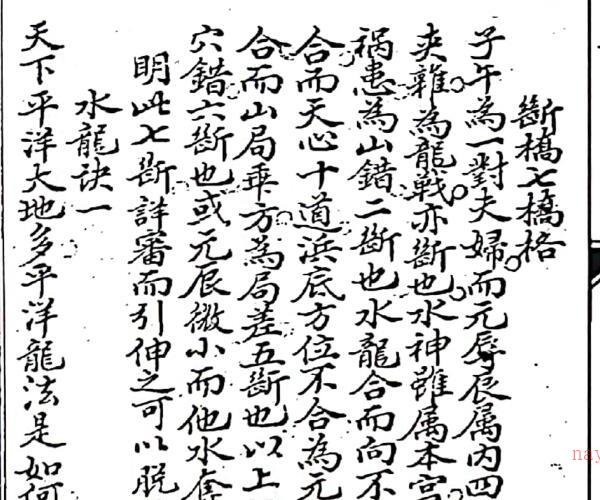 斷橋七橋格
子午為一對夫婦而元辱辰属内四
夾雜為龍戰亦斷也水神雖属本宮
禍患為山錯二斷也水龍合而向不
合而天心十道浜底方位不合為元
合而山局乗方為局差五斷也以上
穴錯六斷也或元辰微小而他水奪
明此七斷詳審而引伸之可以脱
水龍诀一
天下平洋大地多平洋龍法是如何
nay